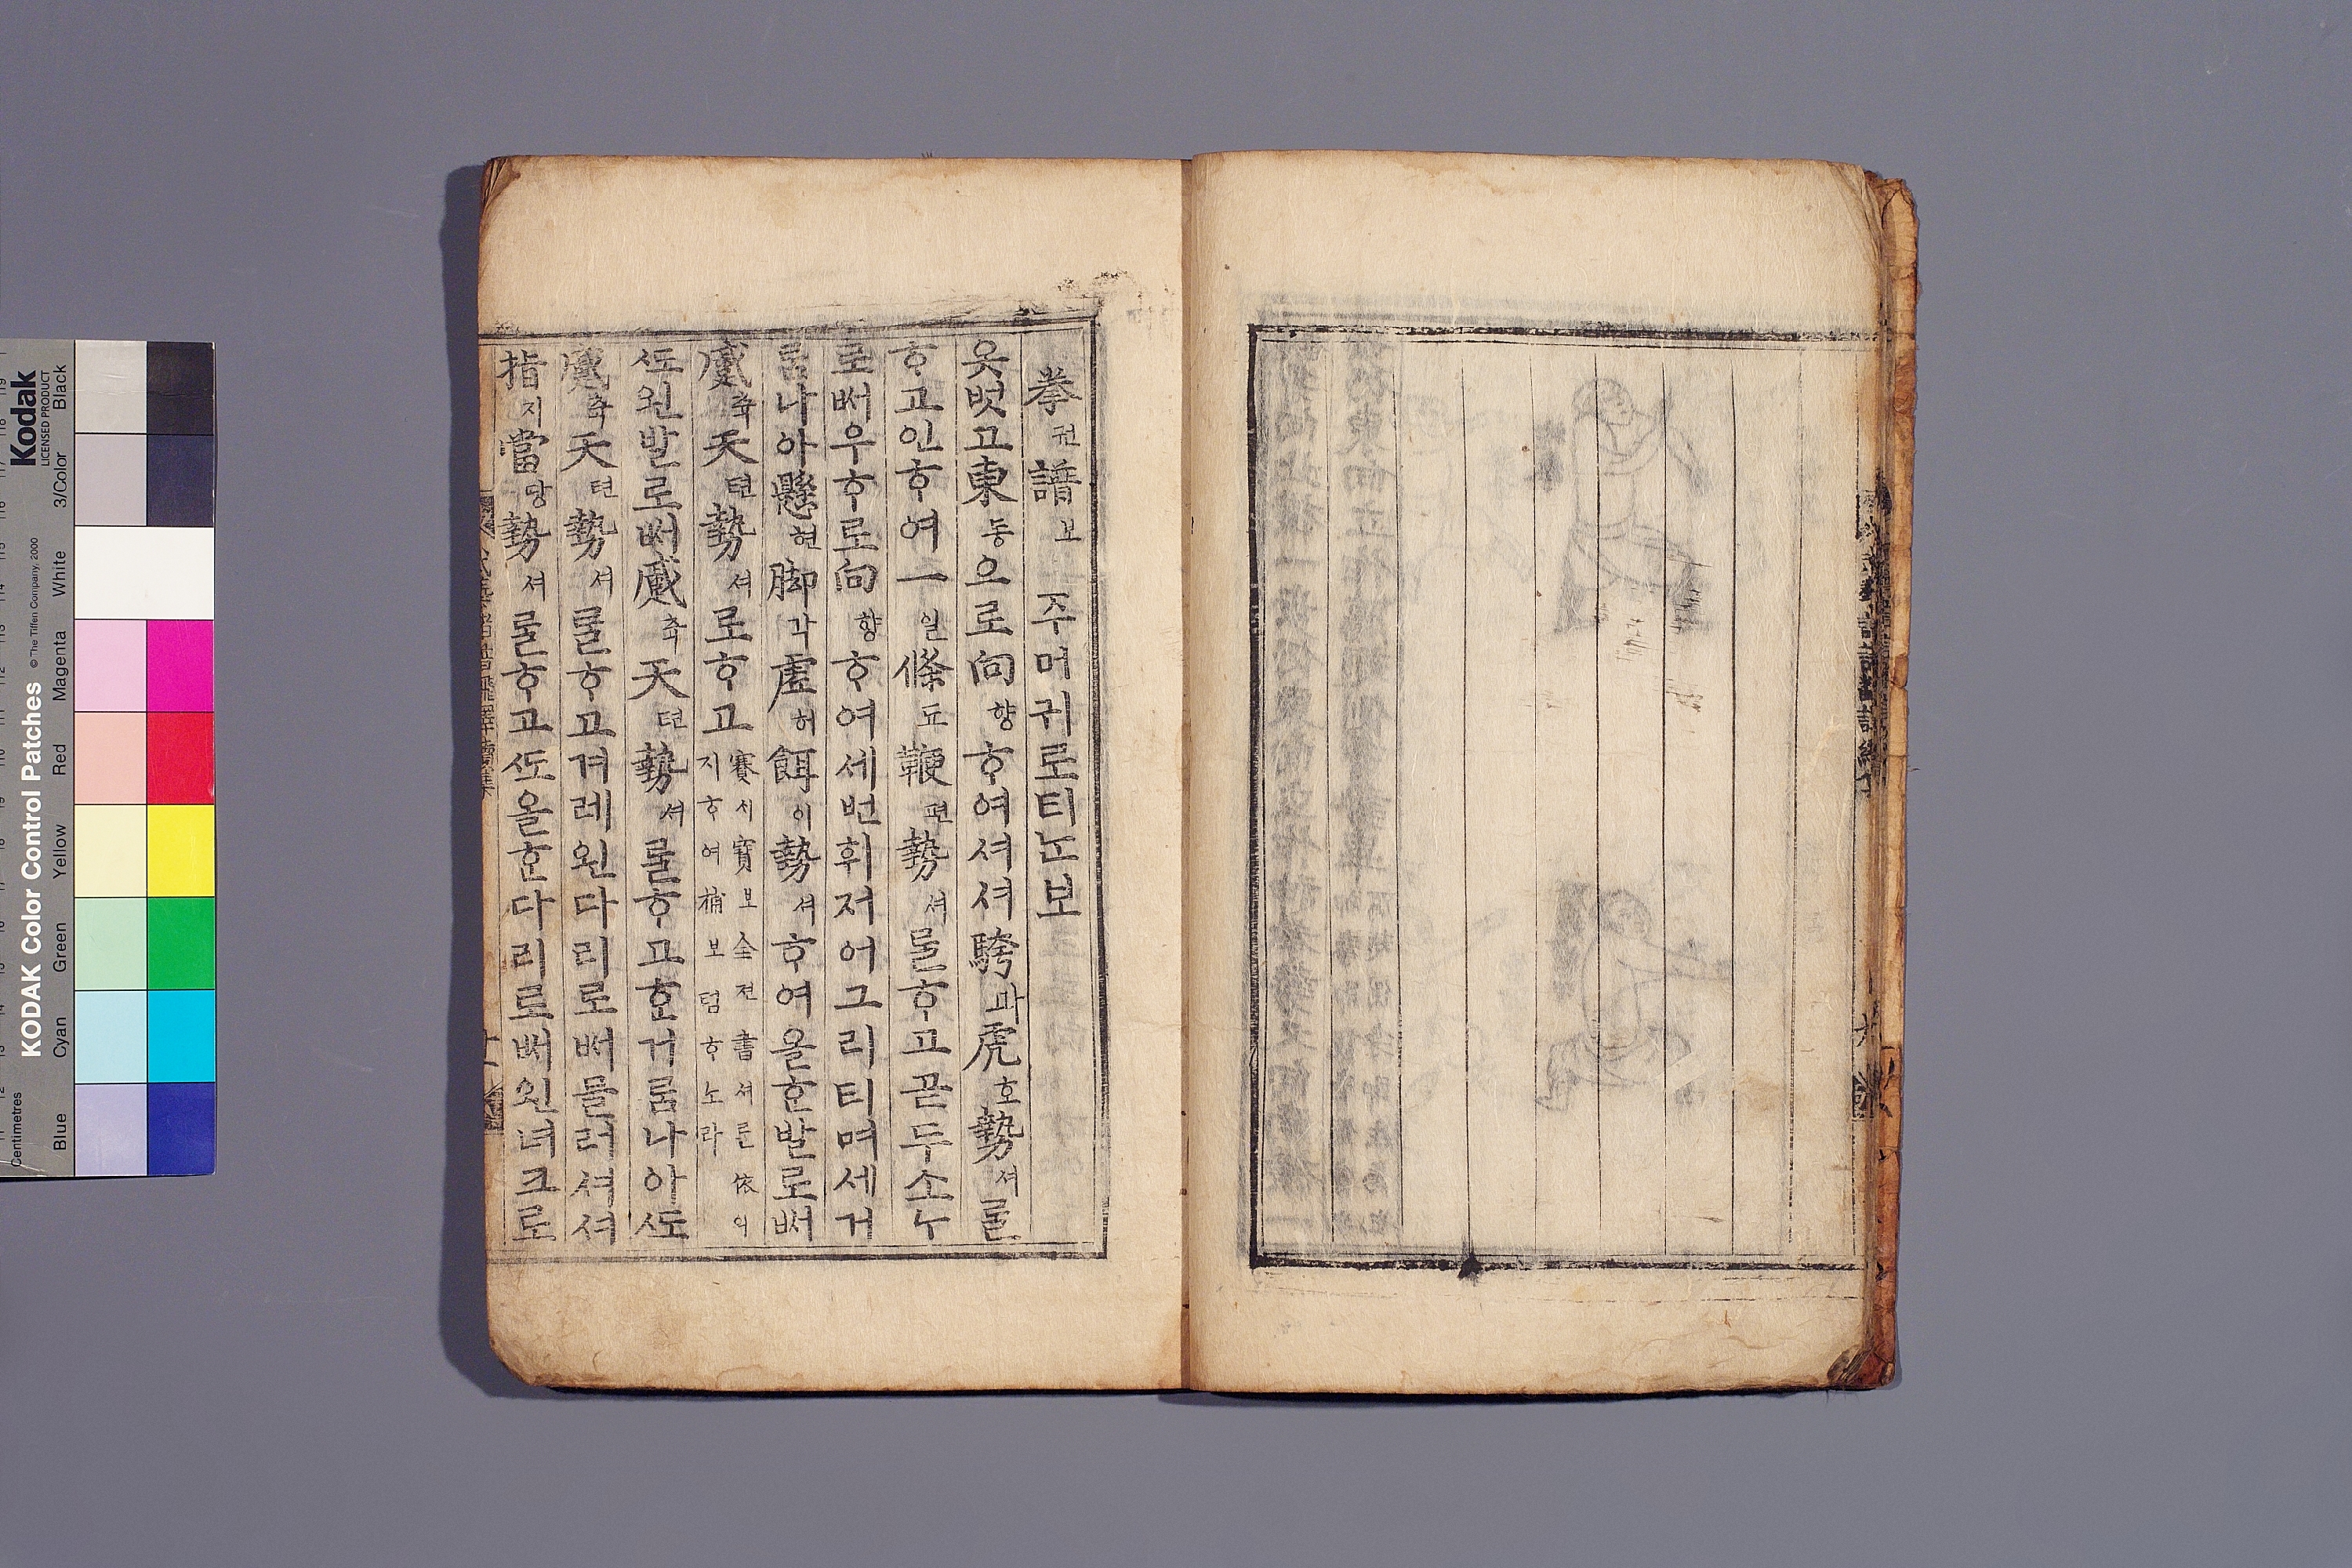 拳권譜보 주머귀로티ᄂᆞᆫ보
옷벗고東동으로向향ᄒᆞ여셔셔騎과虎호勢셔ᄅᆞᆯ
ᄒᆞ고인ᄒᆞ여一일條됴鞭편勢셔ᄅᆞᆯᄒᆞ고곧두소ᄂᆞ
로ᄡᅥ우ᄒᆞ로向향ᄒᆞ여세번휘저어그리티며세거
롬나아懸현脚각虛허餌이勢셔ᄒᆞ여올ᄒᆞᆫ발로ᄡᅥ
蹙축天텬勢셔로ᄒᆞ고
賽ᄉᆡ寶보全젼書셔ᄅᆞᆯ依의
지ᄒᆞ여補보텸ᄒᆞ노라
ᄯᅩ왼발로ᄡᅥ蹙축天텬勢셔ᄅᆞᆯᄒᆞ고ᄒᆞᆫ거롬나아ᄯᅩ
蹙축天텬勢셔ᄅᆞᆯᄒᆞ고겨레왼다리로ᄡᅥ믈러셔셔
指지當당勢셔ᄅᆞᆯᄒᆞ고ᄯᅩ올ᄒᆞᆫ다리로ᄡᅥ왼녀크로
Kodak
LICENSED PRODUCT
KODAK Color Control Patches
© The Tiffen Company, 2000
Centimetres
Blue Cyan Green Yellow Red Magenta White 3/Color Black